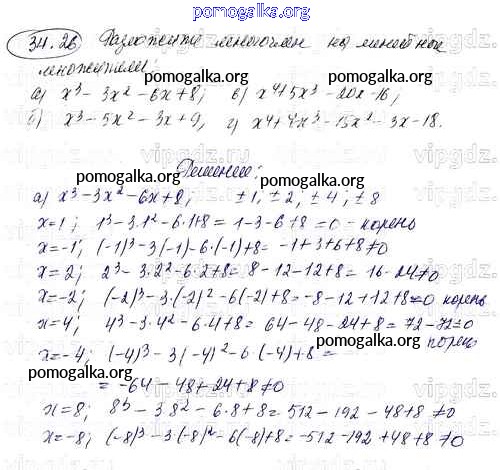 pomogalka.org
34.26 Разложите многочлен на линейные
множители:
pomogalka.org pomogalka.org
а) x³ - 3x² - 6x + 8; в) x⁴ + 5x³ - 20x - 16;
б) x³ - 5x² - 3x + 9; г) x⁴ + 4x³ - 15x² - 3x - 18.
Решение:
pomogalka.org pomogalka.org
а) x³ - 3x² - 6x + 8; ±1, ±2; ±4; ±8
x=1; 1³ - 3·1² - 6·1 + 8 = 1 - 3 - 6 + 8 = 0 - корень
x=-1; (-1)³ - 3(-1) - 6·(-1) + 8 = -1 + 3 + 6 + 8 ≠ 0
x=2; 2³ - 3·2² - 6·2 + 8 = 8 - 12 - 12 + 8 = 16 - 24 ≠ 0
pomogalka.org pomogalka.org
x=-2; (-2)³ - 3·(-2)² - 6(-2) + 8 = -8 - 12 + 12 + 8 = 0 корень
x=4; 4³ - 3·4² - 6·4 + 8 = 64 - 48 - 24 + 8 = 72 - 72 = 0
корень
x=-4; (-4)³ - 3(-4)² - 6·(-4) + 8 =
pomogalka.org pomogalka.org
= -64 - 48 + 24 + 8 ≠ 0
x=8; 8³ - 3·8² - 6·8 + 8 = 512 - 192 - 48 + 8 ≠ 0
x=-8; (-8)³ - 3(-8)² - 6(-8) + 8 = -512 - 192 + 48 + 8 ≠ 0
pomogalka.org